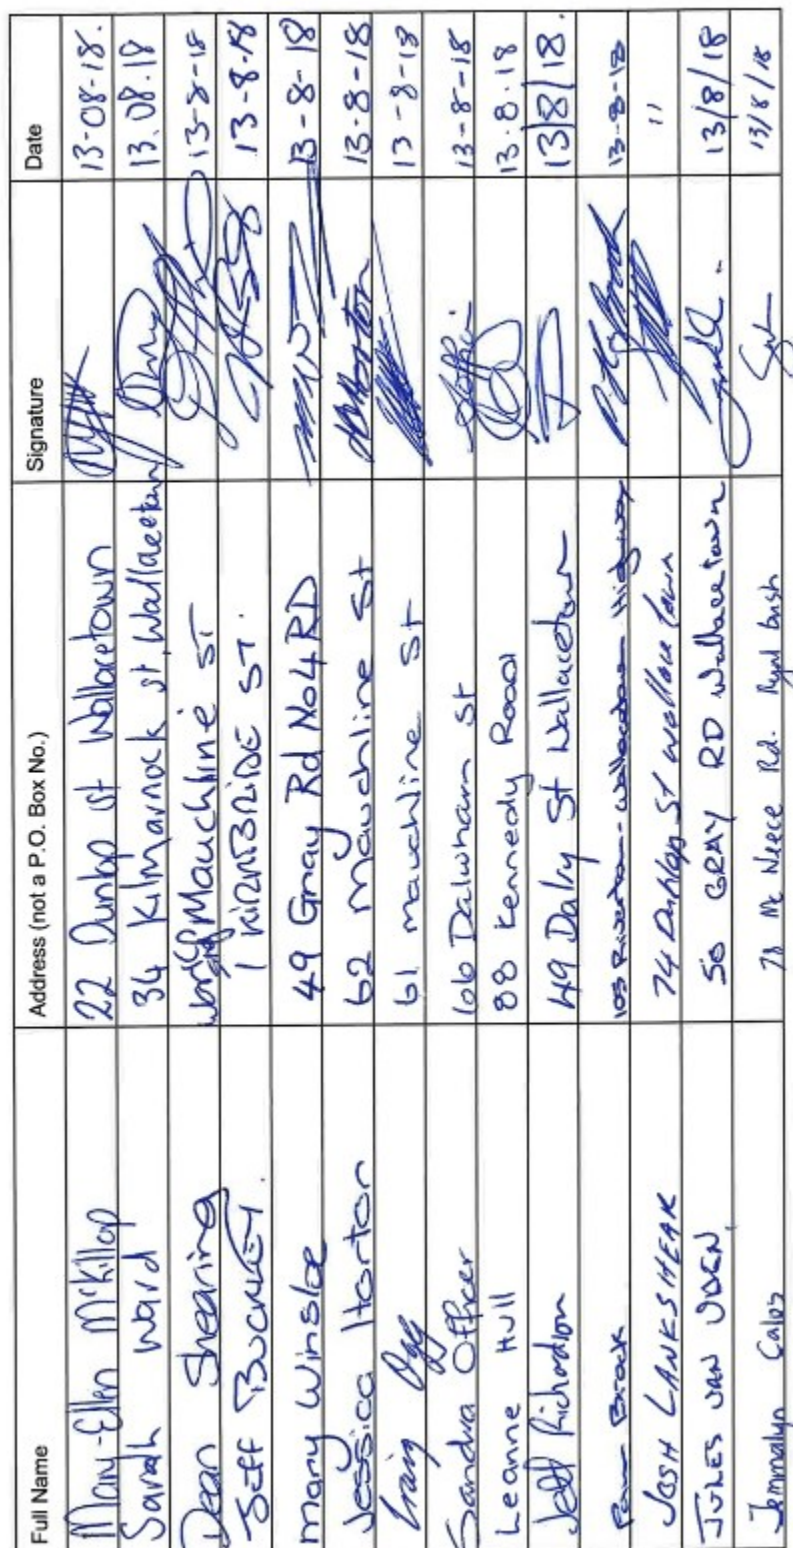 Full Name Address (not a P.O. Box No.) Signature Date
Mary-Ellen McKillop 22 Dunlop St Wallacetown 13-08-18.
Sarah Ward 34 Kilmarnock st, Wallacetown 13.08.18
Dean Shearing Mauchline ST 13-8-18
Jeff Buckley. 1 KIRKBRIDE ST. 13-8-18
Mary Winsloe 49 Gray Rd No4 RD 13-8-18
Jessica Horton 62 Mauchline St 13-8-18
Craig Ogg 61 mauchline St 13-8-18
Sandra Officer 106 Dalwham St 13-8-18
Leanne Hull 88 Kennedy Road 13.8.18
Jeff Richardson 49 Dalry St Wallacetown 13/8/18.
Brock 103 Riverton-Wallacetown Highway 13-8-18
JOSH LANKSHEAR 74 Dunlop St wallace town "
JULES VAN UDEN 50 GRAY RD Wallace town 13/8/18
Jemmalyn 78 Mc Neece Rd. 13/8/18